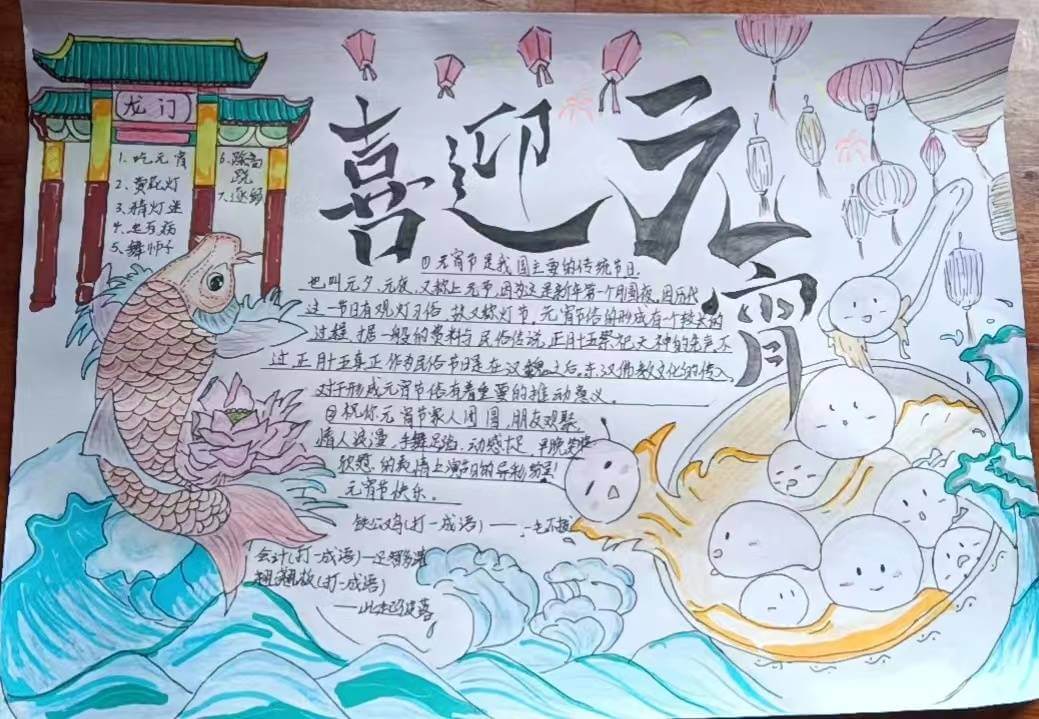 喜迎元宵
龙门
1. 吃元宵
2. 赏花灯
3. 猜灯谜
4. 走百病
5. 舞师子
6. 踩高
跷
7. 逐鼠
①元宵节是我国主要的传统节日.
也叫元夕、元夜、又称上元节,因为这是新年第一个月圆夜,因历代
这一节日有观灯习俗 故又称灯节. 元宵节俗的形成有一个较长的
过程 据一般的资料与民俗传说,正月十五祭祀天神的先声,不
过 正月十五真正作为民俗节日是在汉魏之后,东汉佛教文化的传入,
对于形成元宵节俗有着重要的推动意义.
②祝你元宵节家人团圆,朋友欢聚,
情人浪漫,手舞足蹈,动感十足,
欣慰,的表情上演
元宵节快乐。
铁公鸡(打一成语)——一毛不拔
会计(打一成语)—足智多谋
翘翘板(打一成语)
——此起彼落